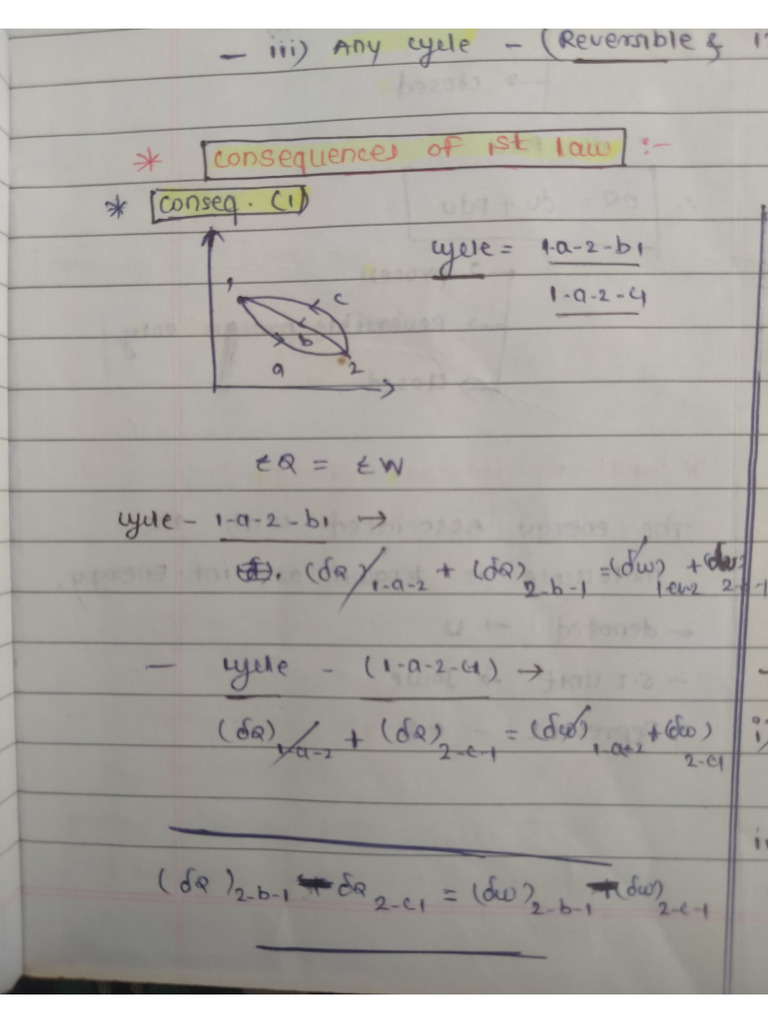 - iii) Any cycle - (Reversible &
* Consequences of 1st law :-
* Conseq. (1)
cycle = 1-a-2-b1
1-a-2-c1
1
c
b
a
2
ΣQ = ΣW
cycle - 1-a-2-b1 →
(δQ)1-a-2 + (δQ)2-b-1 = (δw)1-a-2 + (δw)2-b-1
- cycle - (1-a-2-c1) →
(δQ)1-a-2 + (δQ)2-c-1 = (δw)1-a-2 + (δw)2-c1
(δQ)2-b-1 - δQ2-c1 = (δw)2-b-1 - (δw)2-c-1